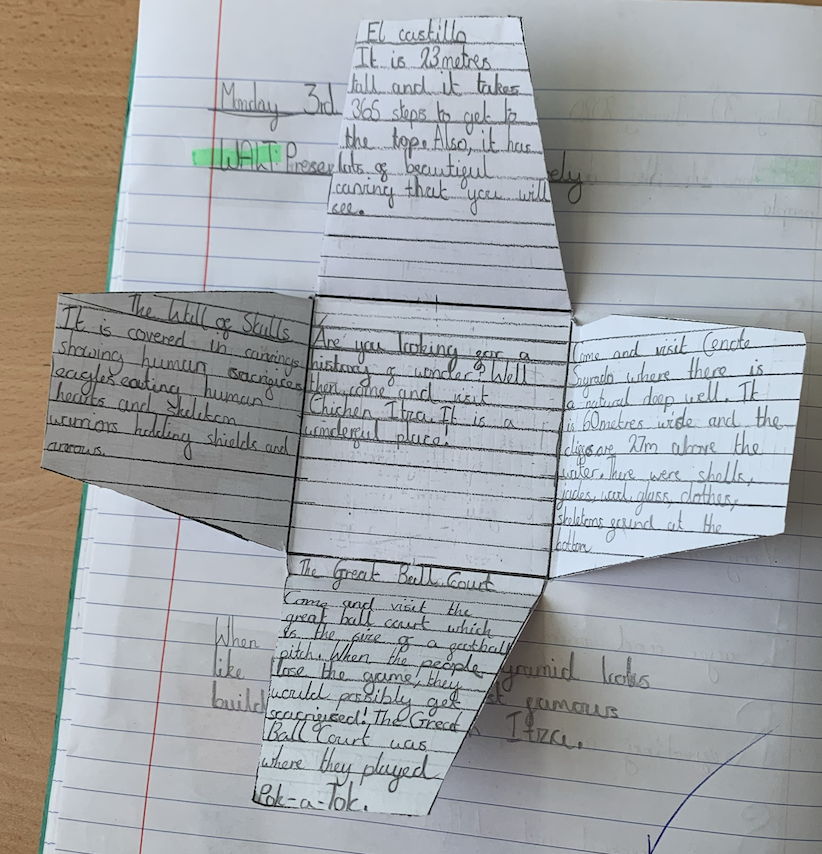 Monday 3rd
WALT: Presen
ely
El castillo
It is 23 metres
tall and it takes
365 steps to get to
the top. Also, it has
lots of beautiful
carving that you will
see.
The Wall of Skulls
It is covered in carvings
showing human sacrifices
eagles eating human
hearts and skeleton
warriors holding shields and
arrows.
Are you looking for a
history of wonder? Well
then come and visit
Chichen Itza. It is a
wonderful place!
Come and visit Cenote
Sagrado where there is
a natural deep well. It
is 60 metres wide and the
cliffs are 27m above the
water. There were shells,
jades, wood, glass, clothes,
skeletons found at the
bottom
The Great Ball Court
Come and visit the
great ball court which
is the size of a football
pitch. When the people
lose the game, they
would possibly get
scacrificed! The Great
Ball Court was
where they played
Pok-a-Tok.
When
yramid looks
like
build
st famous
Itza.